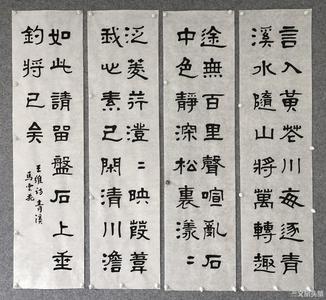 言入黃花川每逐青
溪水隨山將萬轉趣
途無百里聲喧亂石
中色靜深松裏漾〻
泛菱荇澄〻映葭葦
我心素已閑清川澹
如此請留盤石上垂
釣將已矣
王維詩青溪